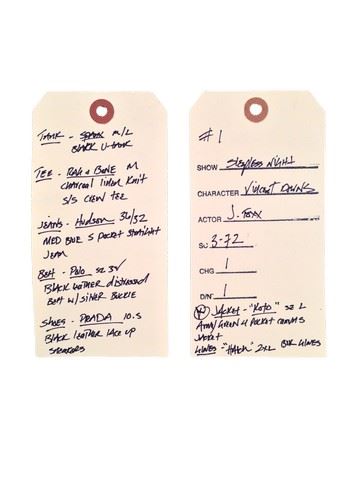 TANK - SPANX M/L
BLACK U-TANK
TEE - RAG & BONE M
CHARCOAL LINEN KNIT
S/S CREW TEE
JEANS - HUDSON 34/32
MED BLUE 5 POCKET STRAIGHT
JEAN
BELT - POLO SZ 34
BLACK LEATHER DISTRESSED
BELT W/ SILVER BUCKLE
SHOES - PRADA 10.5
BLACK LEATHER LACE UP
SNEAKERS
#1
SHOW SLEEPLESS NIGHT
CHARACTER VINCENT DOWNS
ACTOR J. FOXX
SC 3-72
CHG 1
D/N 1
JACKET - "KOTO" SZ L
ARMY GREEN 4 POCKET CANVAS
JACKET
GLOVES - "HATCH" 2XL BLK GLOVES